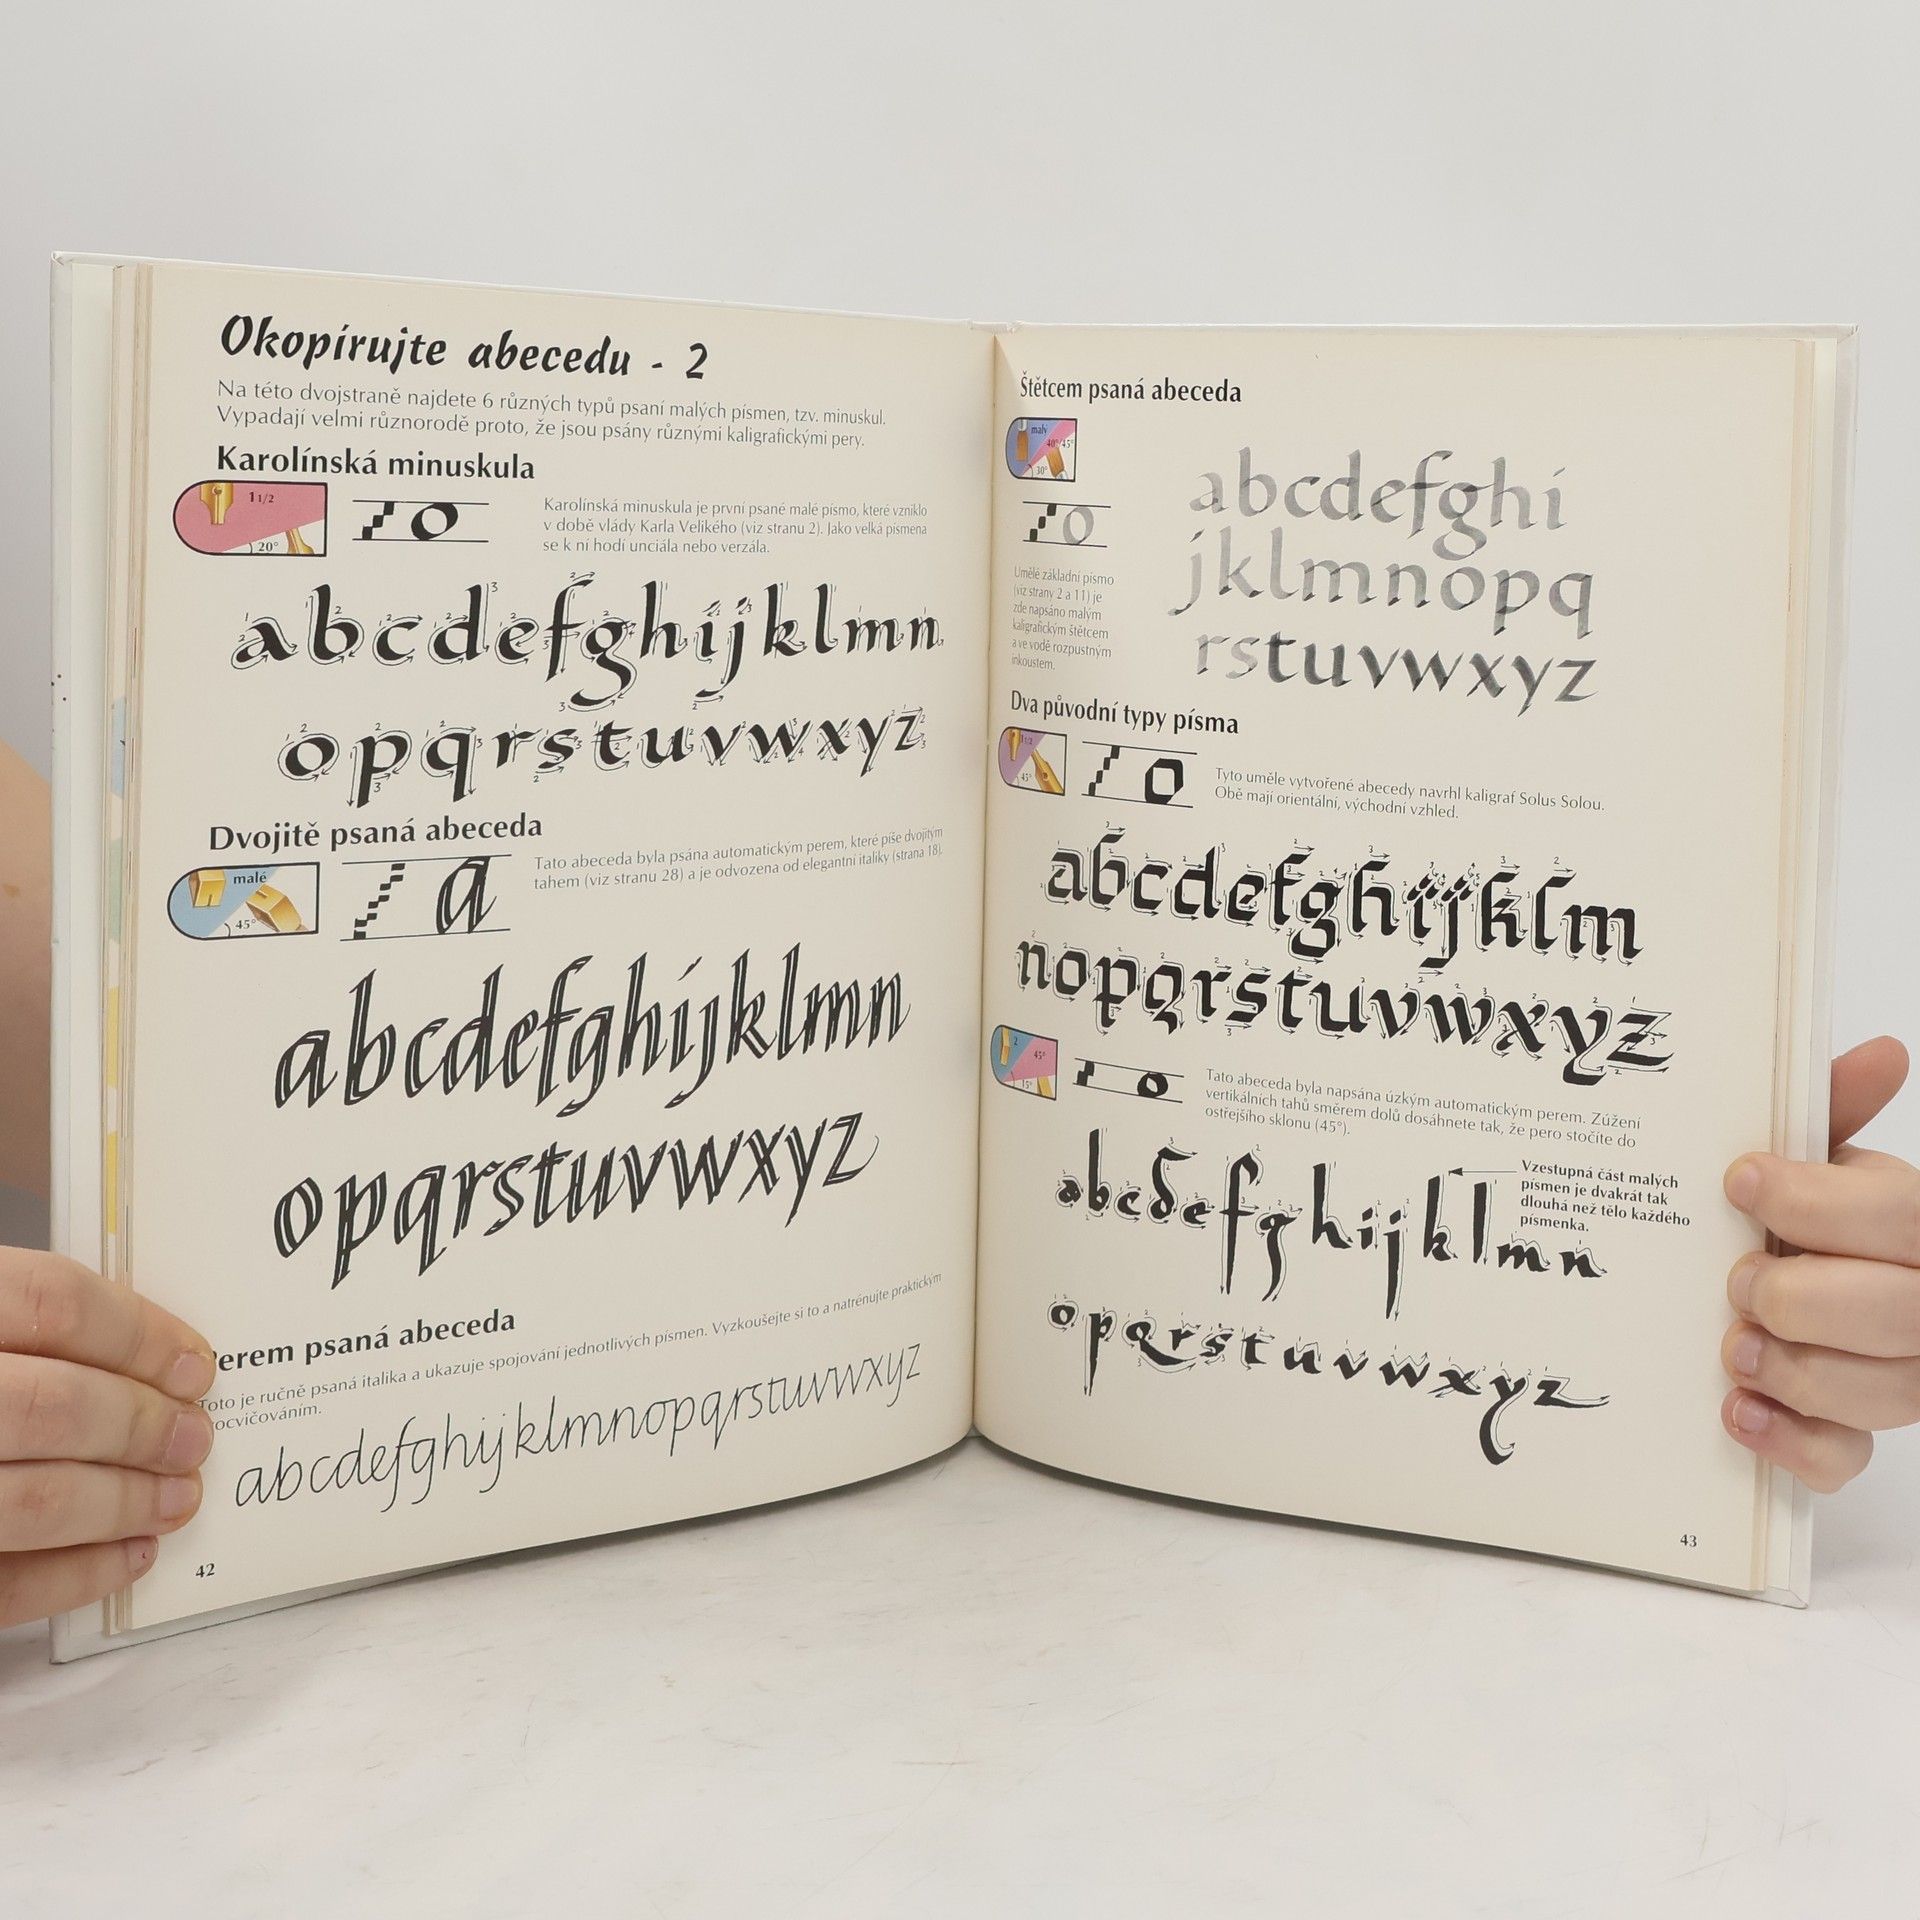 Okopírujte abecedu - 2
Na této dvojstraně najdete 6 různých typů psaní malých písmen, tzv. minuskul.
Vypadají velmi různorodě proto, že jsou psány různými kaligrafickými pery.
Karolínská minuskula
1 1/2
20°
Karolínská minuskula je první psané malé písmo, které vzniklo
v době vlády Karla Velikého (viz stranu 2). Jako velká písmena
se k ní hodí unciála nebo verzála.
abcdefghijklmn
opqrstuvwxyz
Dvojitě psaná abeceda
malé
45°
a
Tato abeceda byla psána automatickým perem, které píše dvojitým
tahem (viz stranu 28) a je odvozena od elegantní italiky (strana 18).
abcdefghijklmn
opqrstuvwxyz
Perem psaná abeceda
Toto je ručně psaná italika a ukazuje spojování jednotlivých písmen. Vyzkoušejte si to a natrénujte praktickým
procvičováním.
abcdefghijklmnopqrstuvwxyz
42
Štětcem psaná abeceda
malý
40°/45°
30°
o
Umělé základní písmo
(viz strany 2 a 11) je
zde napsáno malým
kaligrafickým štětcem
a ve vodě rozpustným
inkoustem.
abcdefghi
jklmnopq
rstuvwxyz
Dva původní typy písma
1 1/2
45°
o
Tyto uměle vytvořené abecedy navrhl kaligraf Solus Solou.
Obě mají orientální, východní vzhled.
abcdefghijklm
nopqrstuvwxyz
2
45°
15°
o
Tato abeceda byla napsána úzkým automatickým perem. Zúžení
vertikálních tahů směrem dolů dosáhnete tak, že pero stočíte do
ostřejšího sklonu (45°).
Vzestupná část malých
písmen je dvakrát tak
dlouhá než tělo každého
písmenka.
abcdefghijklmn
opqrstuvwxyz
43